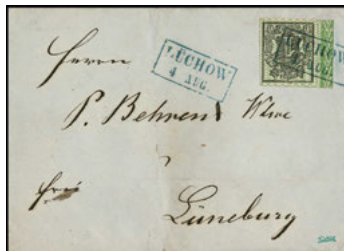 Herrn
LÜCHOW
4 AUG.
LÜCHOW
AUG.
P. Behrens Wwe
frei
Lüneburg